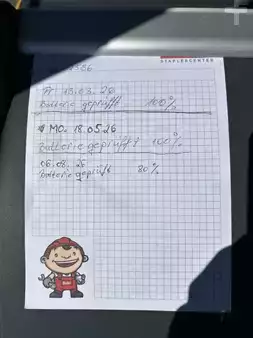 STAPLERCENTER
Fr 13.03.26
Batterie geprüft 100%
Mo. 18.05.26
Batterie geprüft 100%
06.08.26
Batterie geprüft 80%